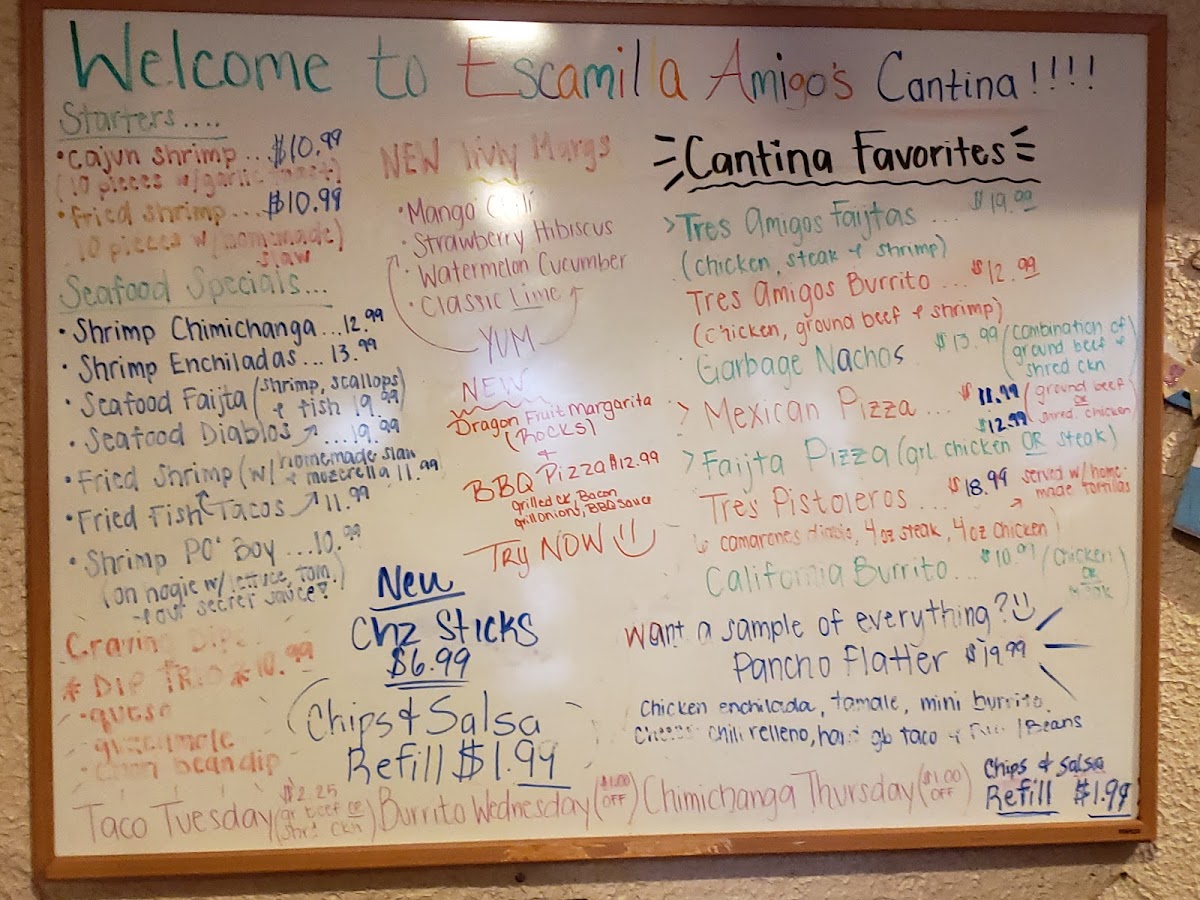 Welcome to Escamilla Amigo's Cantina!!!!
Starters....
• Cajun Shrimp...$10.99
(10 pieces w/garlic
• Fried Shrimp....$10.99
10 pieces w/homemade)
slaw
Seafood Specials...
• Shrimp Chimichanga...12.99
• Shrimp Enchiladas...13.99
• Seafood Faijta (shrimp, scallops
+ fish 19.99)
• Seafood Diablos ...19.99
• Fried Shrimp (w/ homemade slaw
+ mozerella 11.99
• Fried Fish Tacos 11.99
• Shrimp PO' Boy ...10.99
(on hogie w/lettuce, tom.)
+ our secret sauce
Craving Dips
* DIP TRIO * 10.99
• queso
• guacamole
• bean dip
NEW Margs
• Mango Chili
• Strawberry Hibiscus
• Watermelon Cucumber
• Classic Lime
YUM
NEW
Dragon Fruit Margarita
(Rocks)
+
BBQ Pizza $12.99
grilled ck, Bacon
grill onions, BBQ sauce
TRY NOW
New
Chz Sticks
$6.99
Chips & Salsa
Refill $1.99
Cantina Favorites
> Tres Amigos Faijtas ... $19.99
(chicken, steak + shrimp)
Tres Amigos Burrito ... $12.99
(chicken, ground beef + shrimp)
Garbage Nachos $13.99 (combination of
ground beef +
shred ckn)
> Mexican Pizza ... $11.99 (ground beef
OR
$12.99 shred. chicken)
> Faijta Pizza (grl. chicken OR steak)
Tres Pistoleros $18.99 served w/ home-
made tortillas
camarones diablo, 4 oz steak, 4 oz chicken)
California Burrito... (chicken
OR
steak)
Want a sample of everything?
Pancho Flatter $19.99
Chicken enchilada, tamale, mini burrito,
Cheese chili relleno, hard gb taco + Rice /Beans
Taco Tuesday ($2.25
gr beef OR
Shrd Ckn) Burrito Wednesday ($1.00
OFF) Chimichanga Thursday ($1.00
OFF)
Chips & Salsa
Refill $1.99